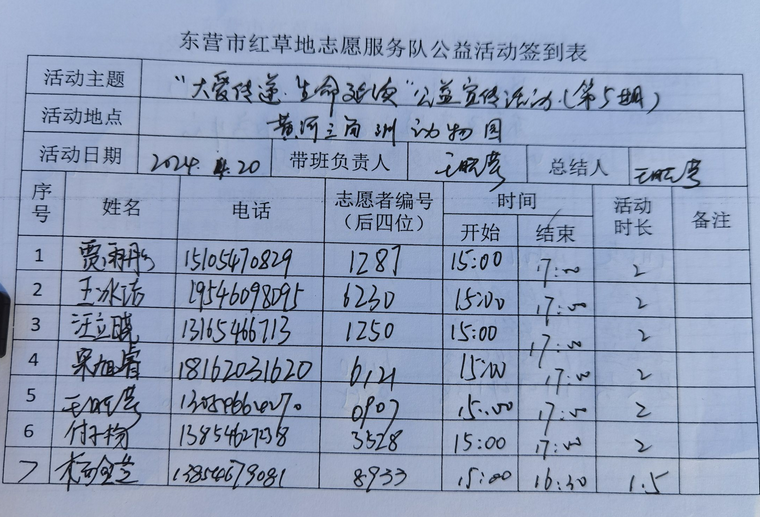 东营市红草地志愿服务队公益活动签到表
活动主题 "大爱传递·生命延续"公益宣传活动(第5期)
活动地点 黄河三角洲动物园
活动日期 2024.4.20 带班负责人 总结人
序号 姓名 电话 志愿者编号(后四位) 时间 开始 结束 活动时长 备注
1 15105470829 1287 15:00 17:00 2
2 王冰洁 19546098095 6230 15:00 17:00 2
3 汪立晓 13165466713 1250 15:00 17:00 2
4 梁旭睿 18162031620 6121 15:00 17:00 2
5 0907 15:00 17:00 2
6 3528 15:00 17:00 2
7 13854679081 8933 15:00 16:30 1.5